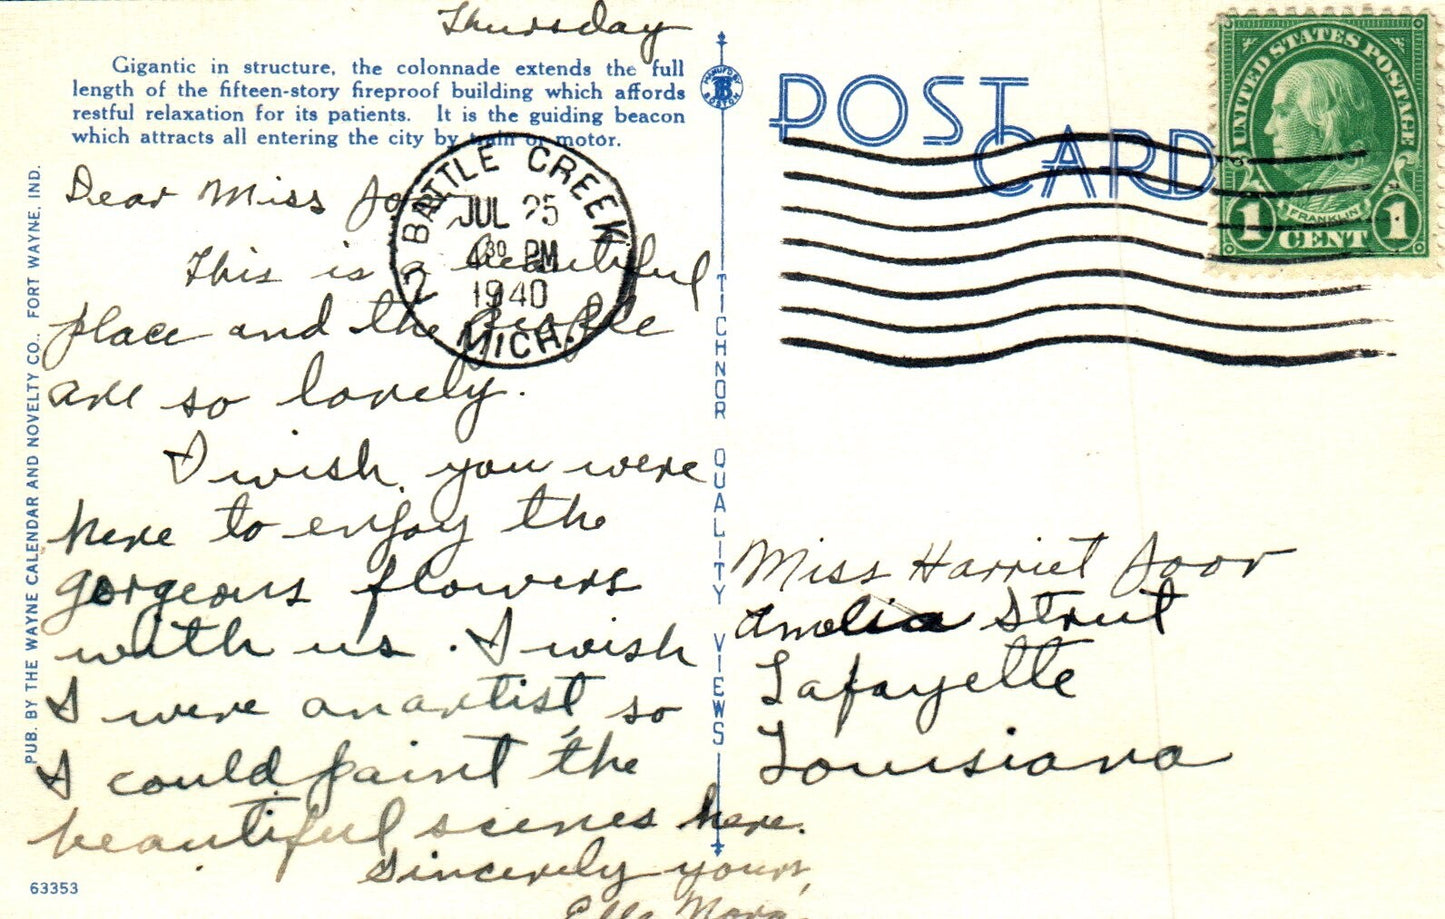 Thursday
Gigantic in structure, the colonnade extends the full
length of the fifteen-story fireproof building which affords
restful relaxation for its patients. It is the guiding beacon
which attracts all entering the city by train or motor.
Dear Miss Joor
This is a beautiful
place and the people
are so lovely.
I wish you were
here to enjoy the
gorgeous flowers
with us. I wish
I were an artist, so
I could paint the
beautiful scenes here.
Sincerely yours,
Ella
PUB. BY THE WAYNE CALENDAR AND NOVELTY CO., FORT WAYNE, IND.
63353
BATTLE CREEK
JUL 25
4 30 PM
1940
MICH.
2
MANUF'D BY
TB
BOSTON
TICHNOR QUALITY VIEWS
POST
CARD
UNITED STATES POSTAGE
FRANKLIN
1 CENT 1
Miss Harriet Joor
Amelia Street
Lafayette
Louisiana